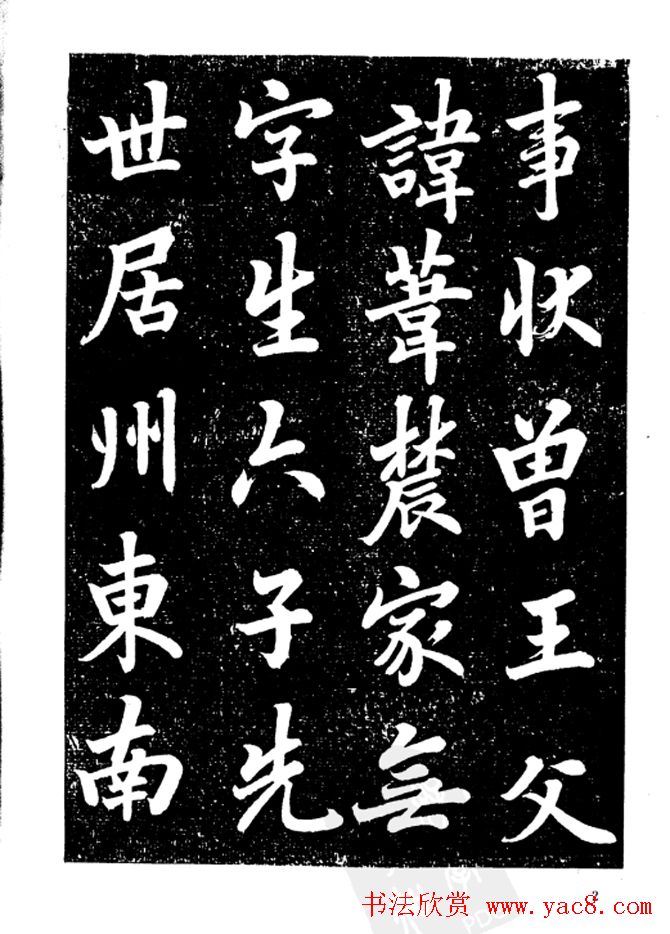 事状曾王父
諱葦辳家無
字生六子先
世居州東南
2
书法欣赏 www.yac8.com